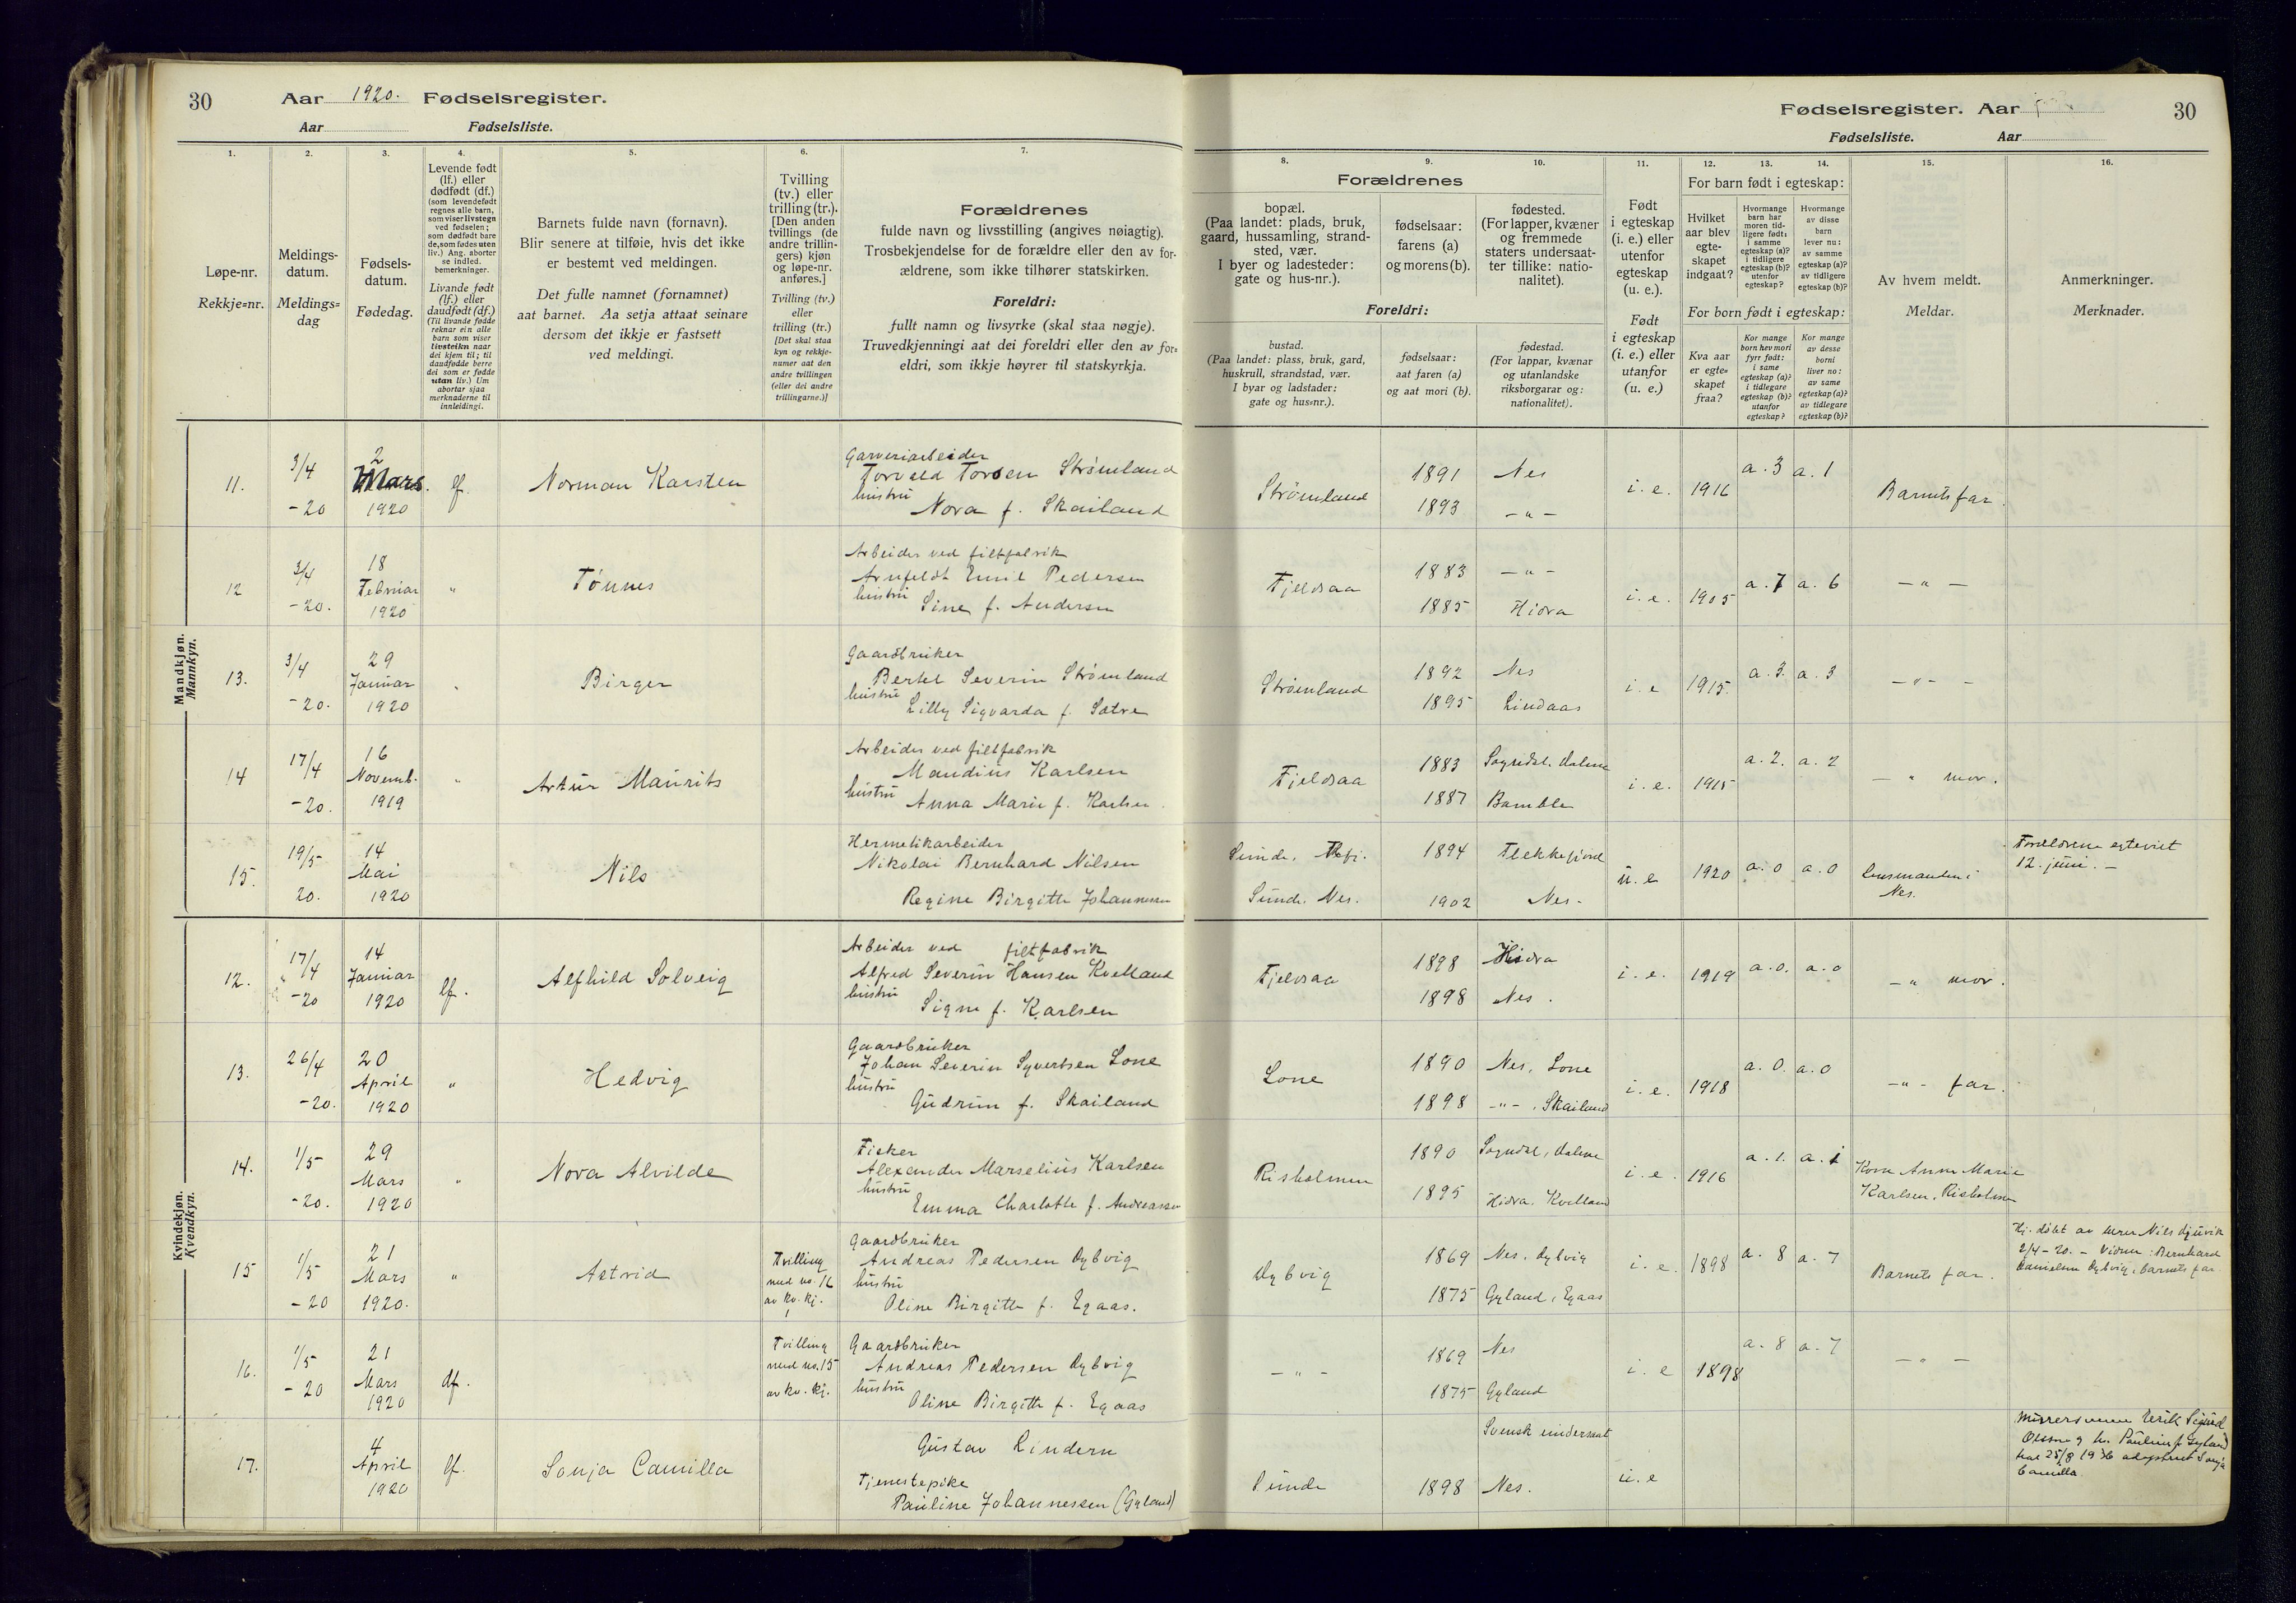 30
Aar 1920. Fødselsregister.
Aar Fødselsliste.
Fødselsregister. Aar
30
Fødselsliste. Aar
1.
2.
3.
4.
5.
6.
7.
8.
9.
10.
11.
12.
13.
14.
15.
16.
Løpe-nr.
Rekkje=nr.
Meldings-
datum.
Meldings=
dag
Fødsels-
datum.
Fødedag.
Levende født
(lf.) eller
dødfødt (df.)
(som levendefødt
regnes alle barn,
som viser livstegn
ved fødselen;
som dødfødt bare
de, som fødes uten
liv.) Ang. aborter
se indled.
bemerkninger.
Livande født
(lf.) eller
daudfødt (df.)
(Til livande fødde
reknar ein alle
barn som viser
livsteikn naar
dei kjem til; til
daudfødde berre
dei som er fødde
utan liv.) Um
abortar sjaa
merknaderne til
innleidingi.
Barnets fulde navn (fornavn).
Blir senere at tilføie, hvis det ikke
er bestemt ved meldingen.
Det fulle namnet (fornamnet)
aat barnet. Aa setja attaat seinare
dersom det ikkje er fastsett
ved meldingi.
Tvilling
(tv.) eller
trilling (tr.).
[Den anden
tvillings (de
andre trillin-
gers) kjøn
og løpe-nr.
anføres.]
Tvilling (tv.)
eller
trilling (tr.)
[Det skal staa
kyn og rekkje-
numer aat den
andre tvillingen
(eller dei andre
trillingarne.)]
Forældrenes
fulde navn og livsstilling (angives nøiagtig).
Trosbekjendelse for de forældre eller den av for-
ældrene, som ikke tilhører statskirken.
Foreldri:
fullt namn og livsyrke (skal staa nøgje).
Truvedkjenningi aat dei foreldri eller den av for=
eldri, som ikkje høyrer til statskyrkja.
Forældrenes
bopæl.
(Paa landet: plads, bruk,
gaard, hussamling, strand-
sted, vær.
I byer og ladesteder:
gate og hus-nr.).
fødselsaar:
farens (a)
og morens (b).
fødested.
(For lapper, kvæner
og fremmede
staters undersaat-
ter tillike: natio-
nalitet).
Foreldri:
bustad.
(Paa landet: plass, bruk, gard,
huskrull, strandstad, vær.
I byar og ladstader:
gate og hus=nr.).
fødselsaar:
aat faren (a)
og aat mori (b).
fødestad.
(For lappar, kvænar
og utanlandske
riksborgarar og:
nationalitet).
Født
i egteskap
(i. e.) eller
utenfor
egteskap
(u. e.).
Født
i egteskap
(i. e.) eller
utanfor
(u. e.)
For barn født i egteskap:
Hvilket
aar blev
egte-
skapet
indgaat?
Hvormange
barn har
moren tid-
ligere født:
i samme
egteskap (a)?
i tidligere
egteskap (b)?
utenfor
egteskap?
Hvormange
av disse
barn
lever nu:
av samme
egteskap (a)?
av tidligere
egteskap (b)?
For born født i egteskap:
Kva aar
er egte=
skapet
fraa?
Kor mange
born hev mori
fyrr født:
i same
egteskap (a)?
i tidlegare
egteskap (b)?
utanfor
egteskap?
Kor mange
av desse
borni
liver no:
av same
egteskap (a)?
av tidlegare
egteskap (b)?
Av hvem meldt.
Meldar.
Anmerkninger.
Merknader.
Mandkjøn.
Mannkyn.
11. 3/4 -20 2 Mars. 1920 lf. Norman Karsten
Garveriarbeider
Torvald Torsen Strømland
hustru
Nora f. Skailand
Strømland 1891 Nes i. e. 1916 a. 3 a. 1 Barnets far.
1893 -"-
12 3/4 -20. 18 Februar 1920 " Tønnes
Arbeider ved filtfabrik
Arnfeldt Emil Pedersen
hustru
Sine f. Andersen
Fjeldsaa 1883 -"- i. e. 1905 a. 7 a. 6 -"-
1885 Hidra
13. 3/4 -20. 29 Januar 1920 " Birger
Gaardbruker
Bertel Severin Strømland
hustru
Lilly Sigvarda f. Sætre
Strømland 1892 Nes i. e 1915. a. 3. a. 3 -"-
1895 Lindaas
14 17/4 -20. 16 Novemb. 1919 " Artur Mauritz
Arbeider ved filtfabrik
Maudius Karlsen
hustru
Anna Marie f. Karlsen.
Fjeldsaa 1883 Sogndal. Dalene i. e. 1915 a. 2. a. 2 - " mor.
1887 Bamble
15. 19/5 20. 14 Mai 1920 Nils
Hermetikarbeider
Nikolai Bernhard Nilsen
Regine Birgitte Johannessen
Sunde, 1894 Flekkefjord u. e 1920 a. 0 a. 0 Lensmanden i
Sunde. Nes. 1902 Nes. Nes.
Forældrene egteviet
12. juni. -
Kvindekjøn.
Kvendkyn.
12. 17/4 -20 14 Januar 1920 lf. Alfhild Solveig
Arbeider ved filtfabrik
Alfred Severin Hansen Kvelland
hustru
Signe f. Karlsen
Fjeldsaa 1898 Hidra i. e. 1919 a. 0. a. 0 -" mor.
1898 Nes.
13. 26/4 -20. 20 April 1920 " Hedvig
Gaardbruker
Johan Severin Syvertsen Lone
hustru
Gudrun f. Skailand
Lone 1890 Nes, Lone i. e. 1918 a. 0. a. 0 -"- far.
1898 -"-, Skailand
14. 1/5 -20. 29 Mars 1920 " Nora Alvilde
Fisker
Alexander Marselius Karlsen
hustru
Emma Charlotte f. Andreassen
Risholmen 1890 Sogndal, Dalene i. e. 1916 a. 1. a. 1 Kone Anne Marie
1895 Hidra. Kvelland Karlsen, Risholmen
15 1/5 -20 21 Mars 1920. " Astrid
Tvilling
med no. 16
av kv. kj.
Gaardbruker
Andreas Pedersen Dybvig
hustru
Oline Birgitte f. Egaas.
Dybvig 1869 Nes. Dybvig i. e. 1898 a. 8 a. 7 Barnets far.
1875 Gyland, Egaas
Hj. døbt av lærer Nils Djuvik
2/4-20. - Vidner: Bernhard
Danielsen Dybvig, barnets far.
16. 1/5 -20 21 Mars 1920 df.
Tvilling
med no. 15
av kv. kj.
Gaardbruker
Andreas Pedersen Dybvig
hustru
Oline Birgitte f. Egaas
-"- 1869 Nes i. e 1898 a. 8 a. 7 -"-
1875 Gyland
17. 4 April 1920 lf. Sonja Camilla
Gustav Lindern
Tjenestepike
Pauline Johannessen (Gyland)
Svensk undersaat
Sunde 1898 Nes. u. e
Murersvenn Sigurd
Olsen og hu. Pauline f. Gyland
har 25/8 1936 adoptert Sonja
Camilla.